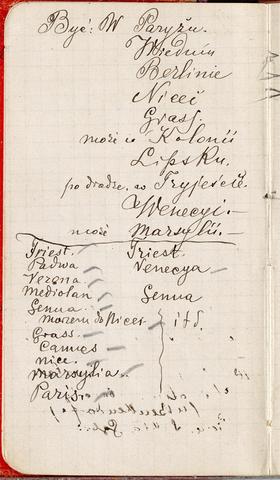 Być: W Paryżu.
Wiedniu
Berlinie
Nicei
Grass.
może w Kolonii
Lipsku.
po drodze. w Tryjeście.
Wenecyi.—
może Marsylii.—
Triest. Triest.
Padwa Venecya
Verona
Mediolan Genua
Genua
morzem do Nicei } itd.
Grass.
Cannes
Nice.
Marsylia.
Paris.